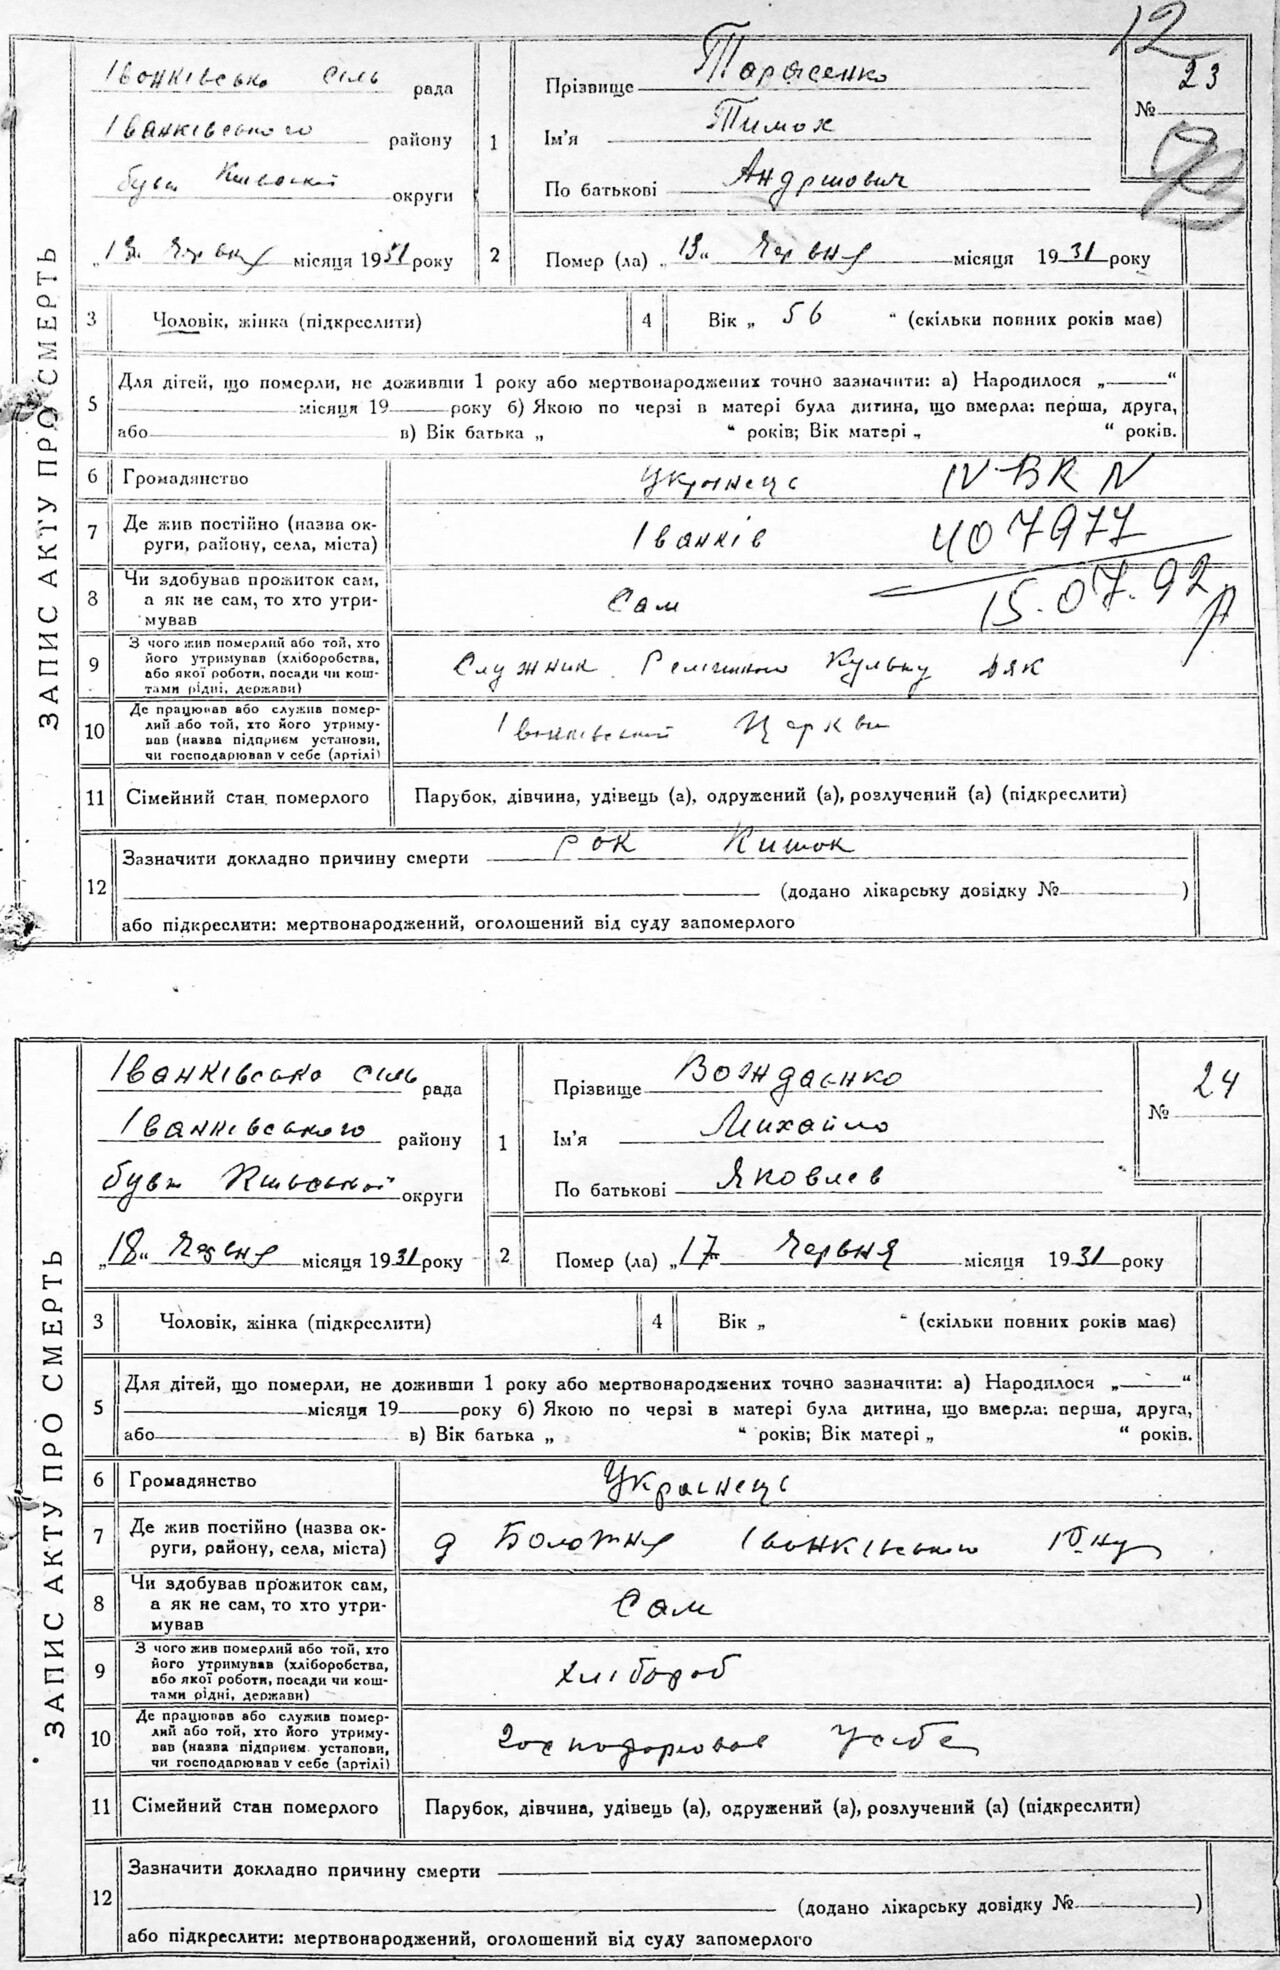 12
ЗАПИС АКТУ ПРО СМЕРТЬ
Іванківська сіль рада
Іванківського району
бувш Київської округи
„13" Червня місяця 1931 року
1
Прізвище Тарасенко
Ім'я Тимох
По батькові Андріович
№ 23
2
Помер (ла) „13" Червня місяця 1931 року
3 Чоловік, жінка (підкреслити)
4 Вік „ 56 " (скільки повних років має)
5 Для дітей, що померли, не доживши 1 року або мертвонароджених точно зазначити: а) Народилося „——"
місяця 19—— року б) Якою по черзі в матері була дитина, що вмерла: перша, друга,
або —— в) Вік батька „ " років; Вік матері „ " років.
6 Громадянство Українець IV-БК N
7 Де жив постійно (назва ок-
руги, району, села, міста) Іванків 407977
8 Чи здобував прожиток сам,
а як не сам, то хто утри-
мував Сам 15.07.92
9 З чого жив померлий або той, хто
його утримував (хліборобства,
або якої роботи, посади чи кош-
тами рідні, держави) Служник Культу дяк
10 Де працював або служив помер-
лий або той, хто його утриму-
вав (назва підприєм установи,
чи господарював у себе (артілі) Іванківській Церкви
11 Сімейний стан померлого Парубок, дівчина, удівець (а), одружений (а), розлучений (а) (підкреслити)
12 Зазначити докладно причину смерти рок Кишок
(додано лікарську довідку №—— )
або підкреслити: мертвонароджений, оголошений від суду запомерлого
ЗАПИС АКТУ ПРО СМЕРТЬ
Іванківська сіль рада
Іванківського району
бувш Київської округи
„18" Червня місяця 1931 року
1
Прізвище Вождаєнко
Ім'я Михайло
По батькові Яковлев
№ 24
2
Помер (ла) „17" Червня місяця 1931 року
3 Чоловік, жінка (підкреслити)
4 Вік „ " (скільки повних років має)
5 Для дітей, що померли, не доживши 1 року або мертвонароджених точно зазначити: а) Народилося „——"
місяця 19—— року б) Якою по черзі в матері була дитина, що вмерла: перша, друга,
або —— в) Вік батька „ " років; Вік матері „ " років.
6 Громадянство Українець
7 Де жив постійно (назва ок-
руги, району, села, міста) д Болотня Іванківського
8 Чи здобував прожиток сам,
а як не сам, то хто утри-
мував Сам
9 З чого жив померлий або той, хто
його утримував (хліборобства,
або якої роботи, посади чи кош-
тами рідні, держави) хлібороб
10 Де працював або служив помер-
лий або той, хто його утриму-
вав (назва підприєм. установи,
чи господарював у себе (артілі) Господарював у себе
11 Сімейний стан померлого Парубок, дівчина, удівець (а), одружений (а), розлучений (а) (підкреслити)
12 Зазначити докладно причину смерти
(додано лікарську довідку №—— )
або підкреслити: мертвонароджений, оголошений від суду запомерлого